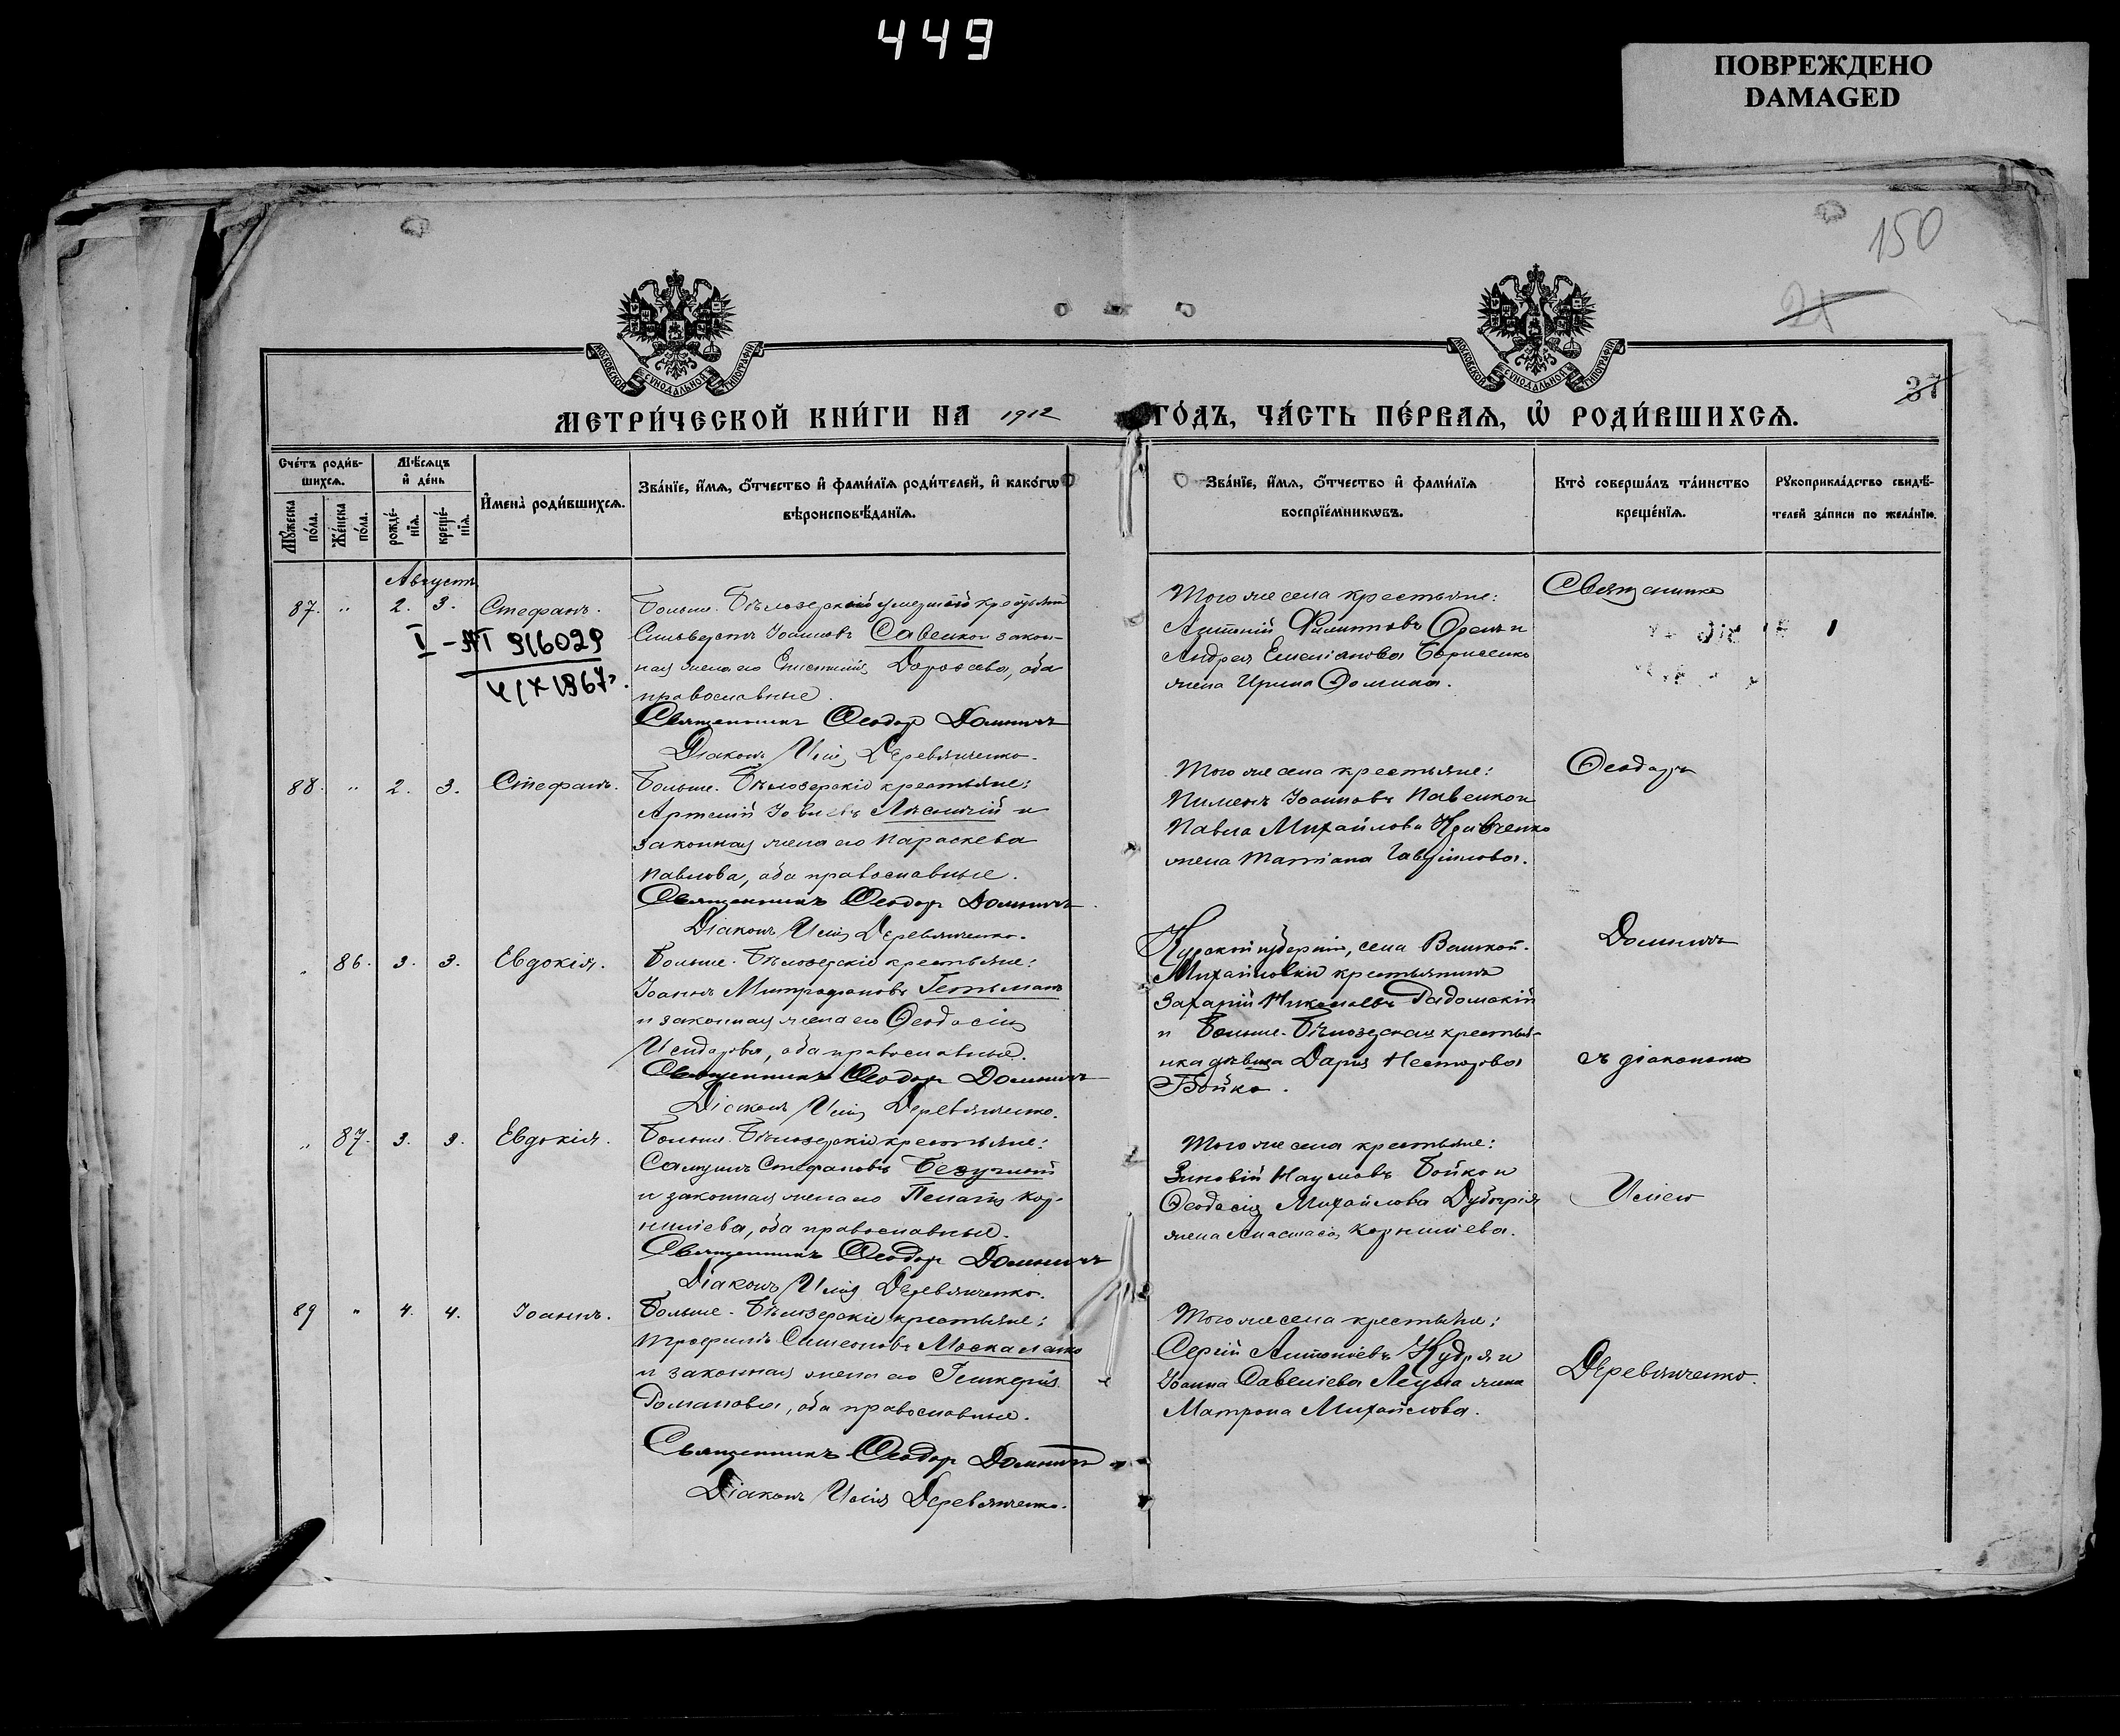 449
ПОВРЕЖДЕНО
DAMAGED
150
21
37
МОСКОВСКОЙ СѴНОДАЛЬНОЙ ТИПОГРАФІИ
МОСКОВСКОЙ СѴНОДАЛЬНОЙ ТИПОГРАФІИ
МЕТРИ́ЧЕСКОЙ КНИ́ГИ НА 1912 ГО́ДЪ, ЧА́СТЬ ПЕ́РВАЯ, Ѡ҆ РОДИ́ВШИХСЯ.
Сче́тъ роди́в-
шихся.
Мꙋ́жеска по́ла.
Же́нска по́ла.
Мѣ́сяцъ и҆ де́нь
рожде́-нїя.
креще́-нїя.
И҆мена̀ роди́вшихся.
Зва́нїе, и҆́мя, ѻ҆́тчество и҆ фами́лїя роди́телей, и҆ како́гѡ
вѣроисповѣ́данїя.
Зва́нїе, и҆́мя, ѻ҆́тчество и҆ фами́лїя
воспрїе́мникѡвъ.
Кто̀ соверша́лъ та́инство
креще́нїя.
Рꙋкоприкла́дство свидѣ́-
телей за́писи по жела́нїю.
Августъ
87. " 2. 3. Стефанъ.
I - АП 916029
4/X 1967г.
Больше-Бѣлозерскій крестьянинъ
Сильвестръ Іоанновъ Савенко и закон-
ная жена его Дороѳеева, оба
православные.
Священникъ Ѳеодоръ Домничъ
Діаконъ Илія Деревянченко.
Того же села крестьяне:
Филипповъ Орелъ и
Андрея Емеліанова Борисенко
жена Ирина Ѳомина.
Священникъ
88. " 2. 3. Стефанъ.
Больше-Бѣлозерскіе крестьяне:
Артемій Іовлевъ и
законная жена его Параскева
Павлова, оба православные.
Священникъ Ѳеодоръ Домничъ
Діаконъ Илія Деревянченко.
Того же села крестьяне:
Пименъ Іоанновъ Павенко и
Павла Михайлова Кравченко
жена Татіана Гавріилова.
Ѳеодоръ
" 86. 3. 3. Евдокія.
Больше-Бѣлозерскіе крестьяне:
Іоаннъ Митрофановъ Гетьманъ
и законная жена его Ѳеодосія
Исидорова, оба православные.
Священникъ Ѳеодоръ Домничъ
Діаконъ Илія Деревянченко.
Курской губерніи, села
Михайловки крестьянинъ
Захарій Николаевъ Радомскій
и Больше-Бѣлозерская крестьян-
ка дѣвица Дарія Несторова
Бойко.
Домничъ
съ діакономъ
" 87. 3. 3. Евдокія.
Больше-Бѣлозерскіе крестьяне:
Самуилъ Стефановъ Безуглый
и законная жена его Пелагія Кор-
ниліева, оба православные.
Священникъ Ѳеодоръ Домничъ
Діаконъ Илія Деревянченко.
Того же села крестьяне:
Зиновій Наумовъ Бойко и
Ѳеодосія Михайлова
жена Анастасія Корниліева.
Иліею
89 " 4. 4. Іоаннъ.
Больше-Бѣлозерскіе крестьяне:
Трофимъ Симеоновъ Москаленко
и законная жена его Гликерія
Романова, оба православные.
Священникъ Ѳеодоръ Домничъ
Діаконъ Илія Деревянченко.
Того же села крестьяне:
Сергій Антоніевъ Кудря и
Іоанна Савеліева жена
Матрона Михайлова.
Деревянченко.